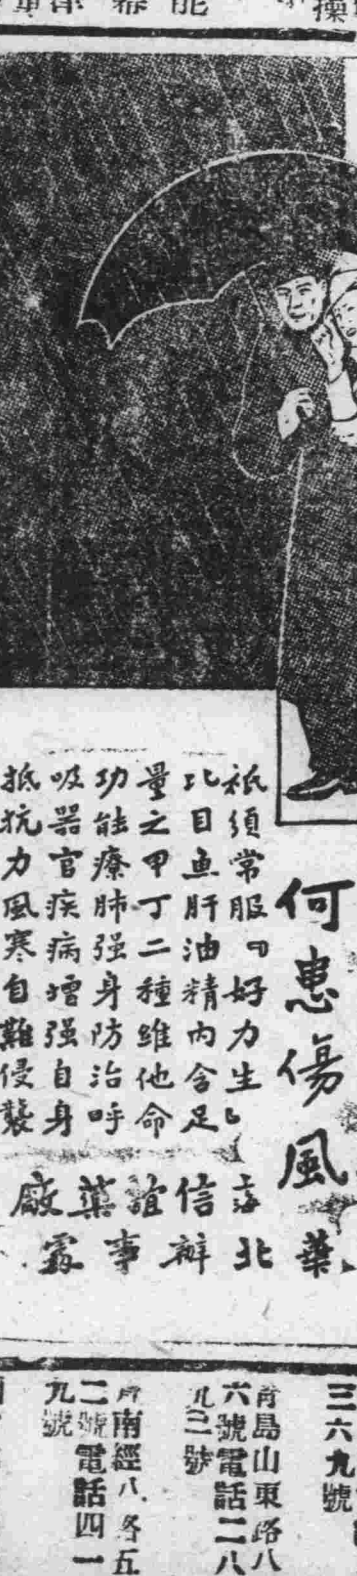 何患傷風
祇須常服『好力生』
比目魚肝油精內含足
量之甲丁二種維他命
功能療肺強身防治呼
吸器官疾病增强自身
抵抗力風寒自難侵襲
上海信誼藥廠
華北辦事處
三六九號
青島山東路八
六號電話二八
九三號
濟南經八路五
二號電話四一
九號